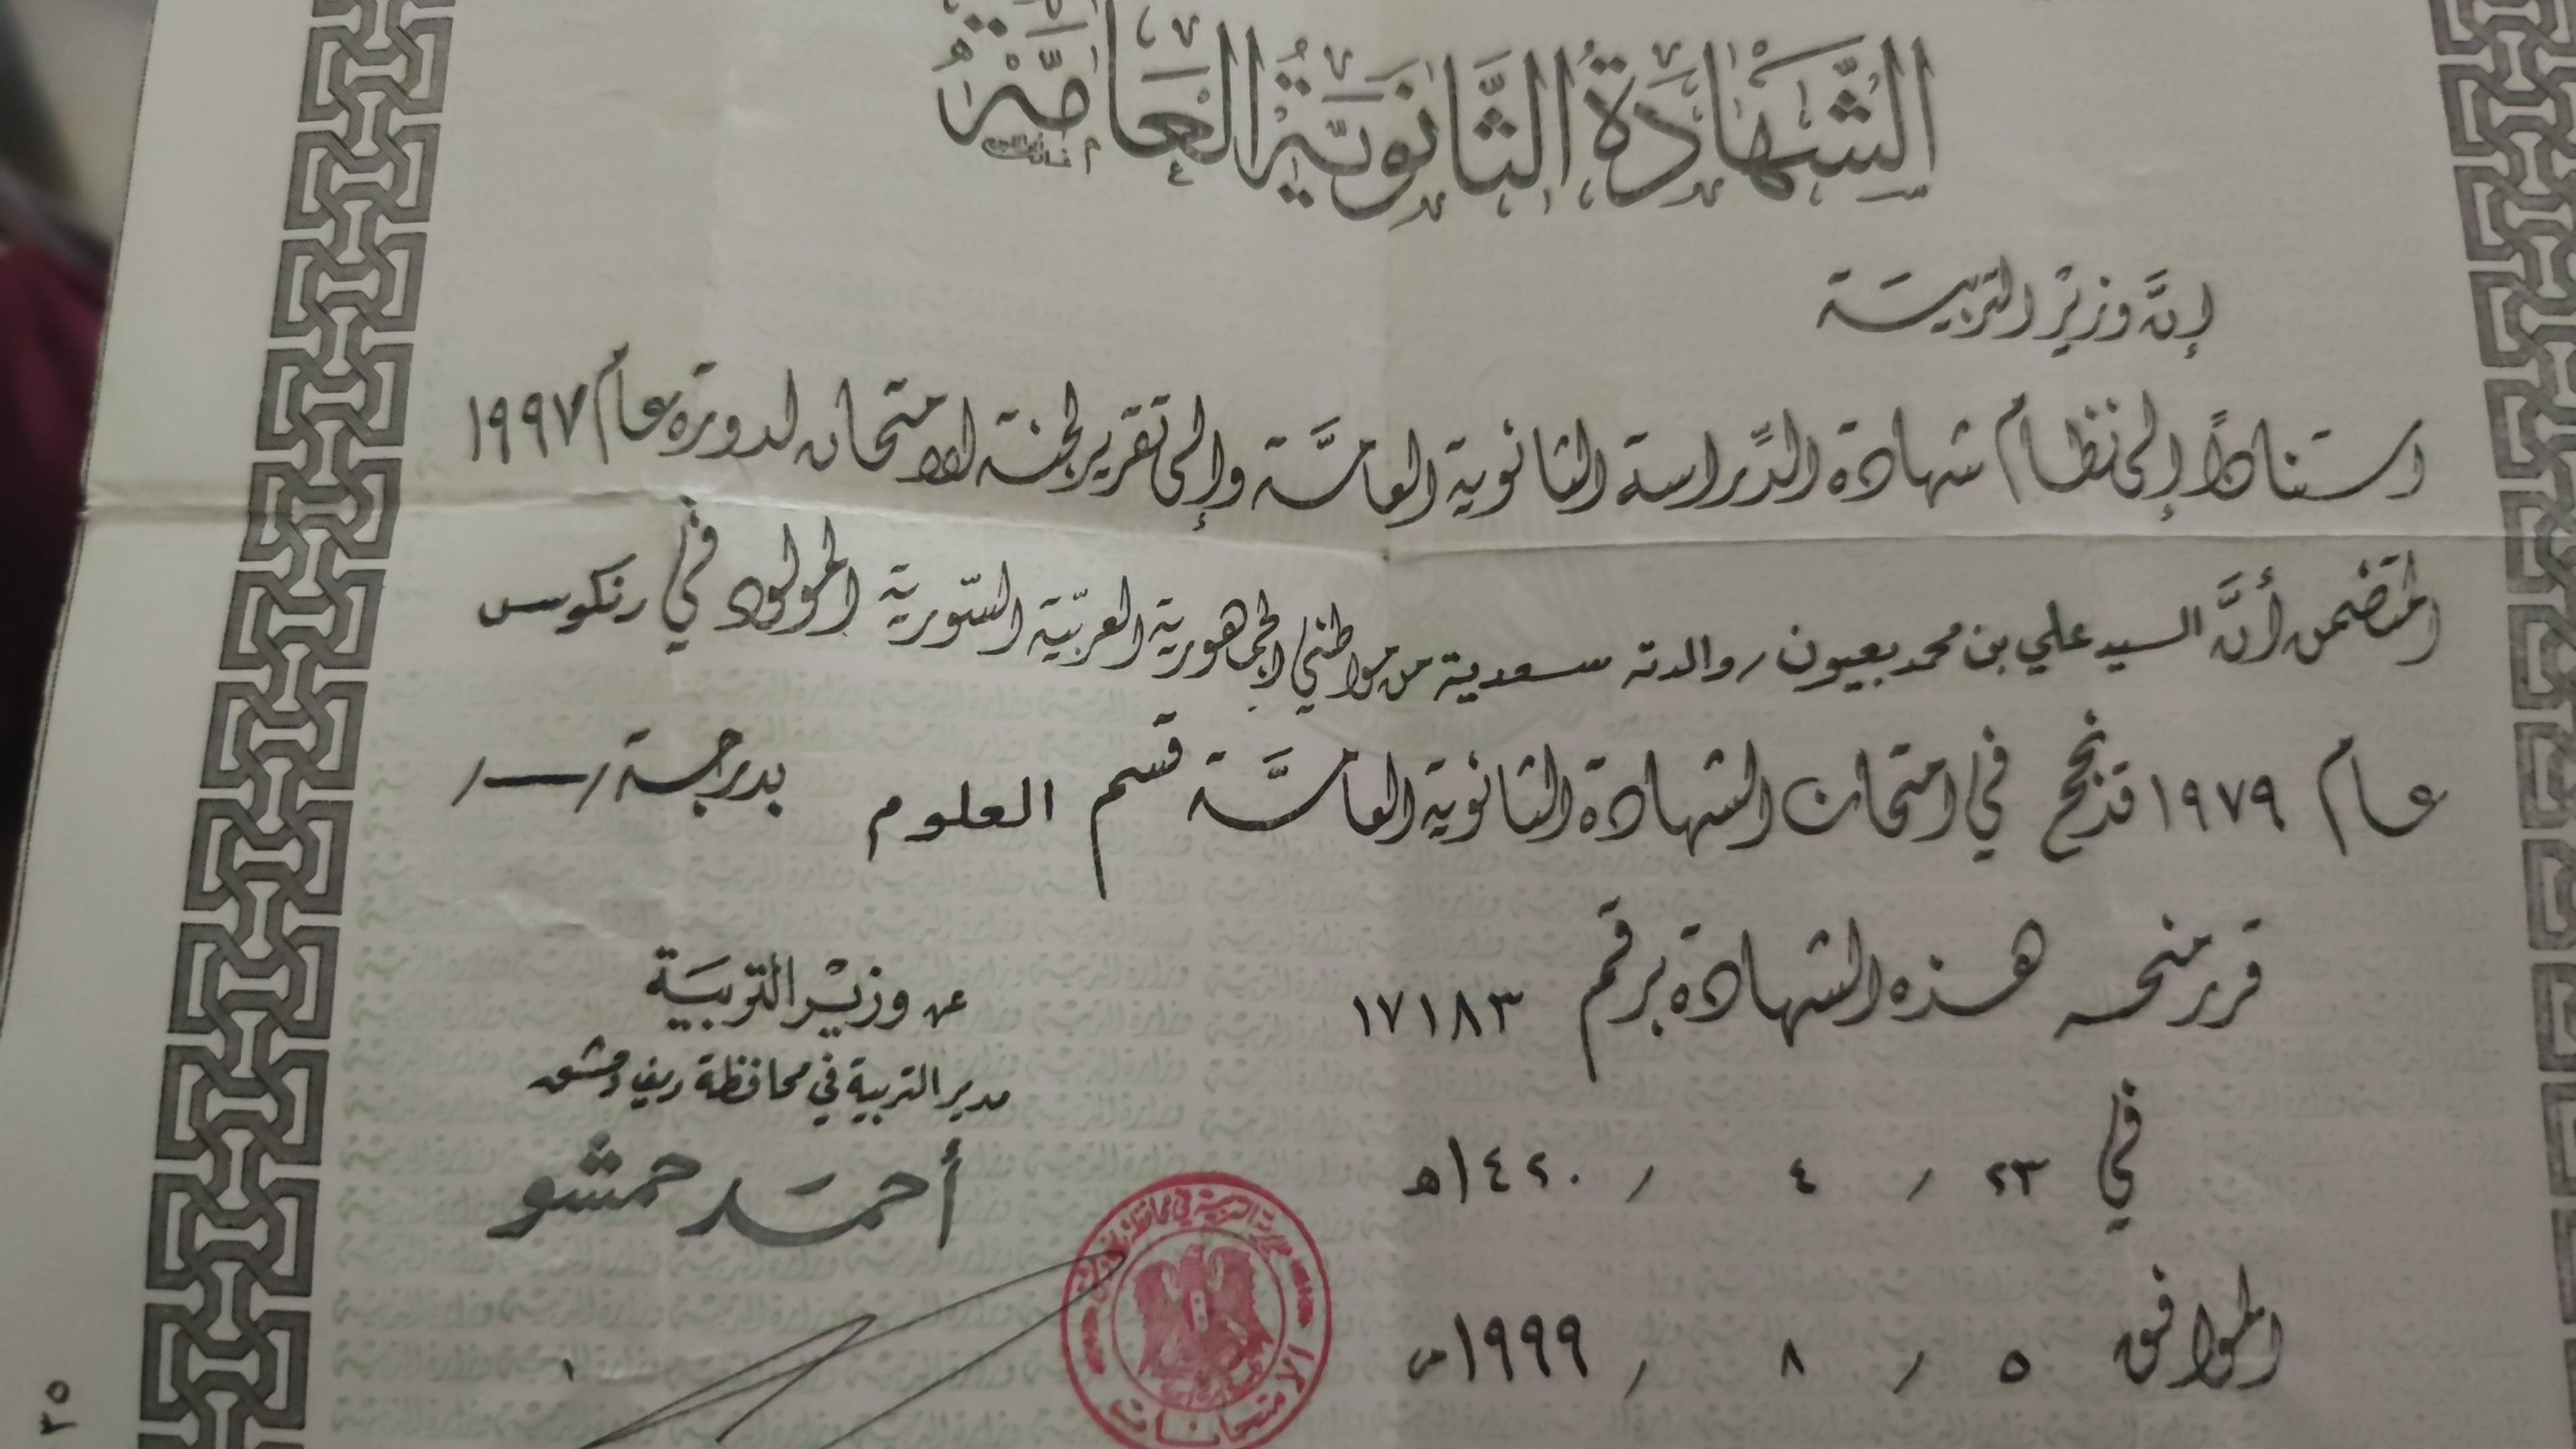 الشَّهَادَةُ الثَّانَوِيَّةُ العَامَّةُ
إنَّ وزيرَ التربيَة
استناداً إلى نظام شهادة الدِّراسة الثانوية العامَّة وإلى تقرير لجنة الامتحان لدورة عام ١٩٩٧
المتضمن أنَّ السيد علي بن محمد بعيون / والدته سعدية من مواطني الجمهورية العربيّة السّورية المولود في رنكوس
عام ١٩٧٩ قد نجح في امتحان الشهادة الثانوية العامَّة قسم العلوم بدرجة /ــ/
قرر منحه هذه الشهادة برقم ١٧١٨٣
في ٢٣ / ٤ / ١٤٢٠هـ
الموافق ٥ / ٨ / ١٩٩٩م
عن وزيْر التربيَة
مدير التربية في محافظة ريف دمشق
أحمَد حمشو
مديرية التربية في محافظة ريف دمشق
الامتحانات
٣٥